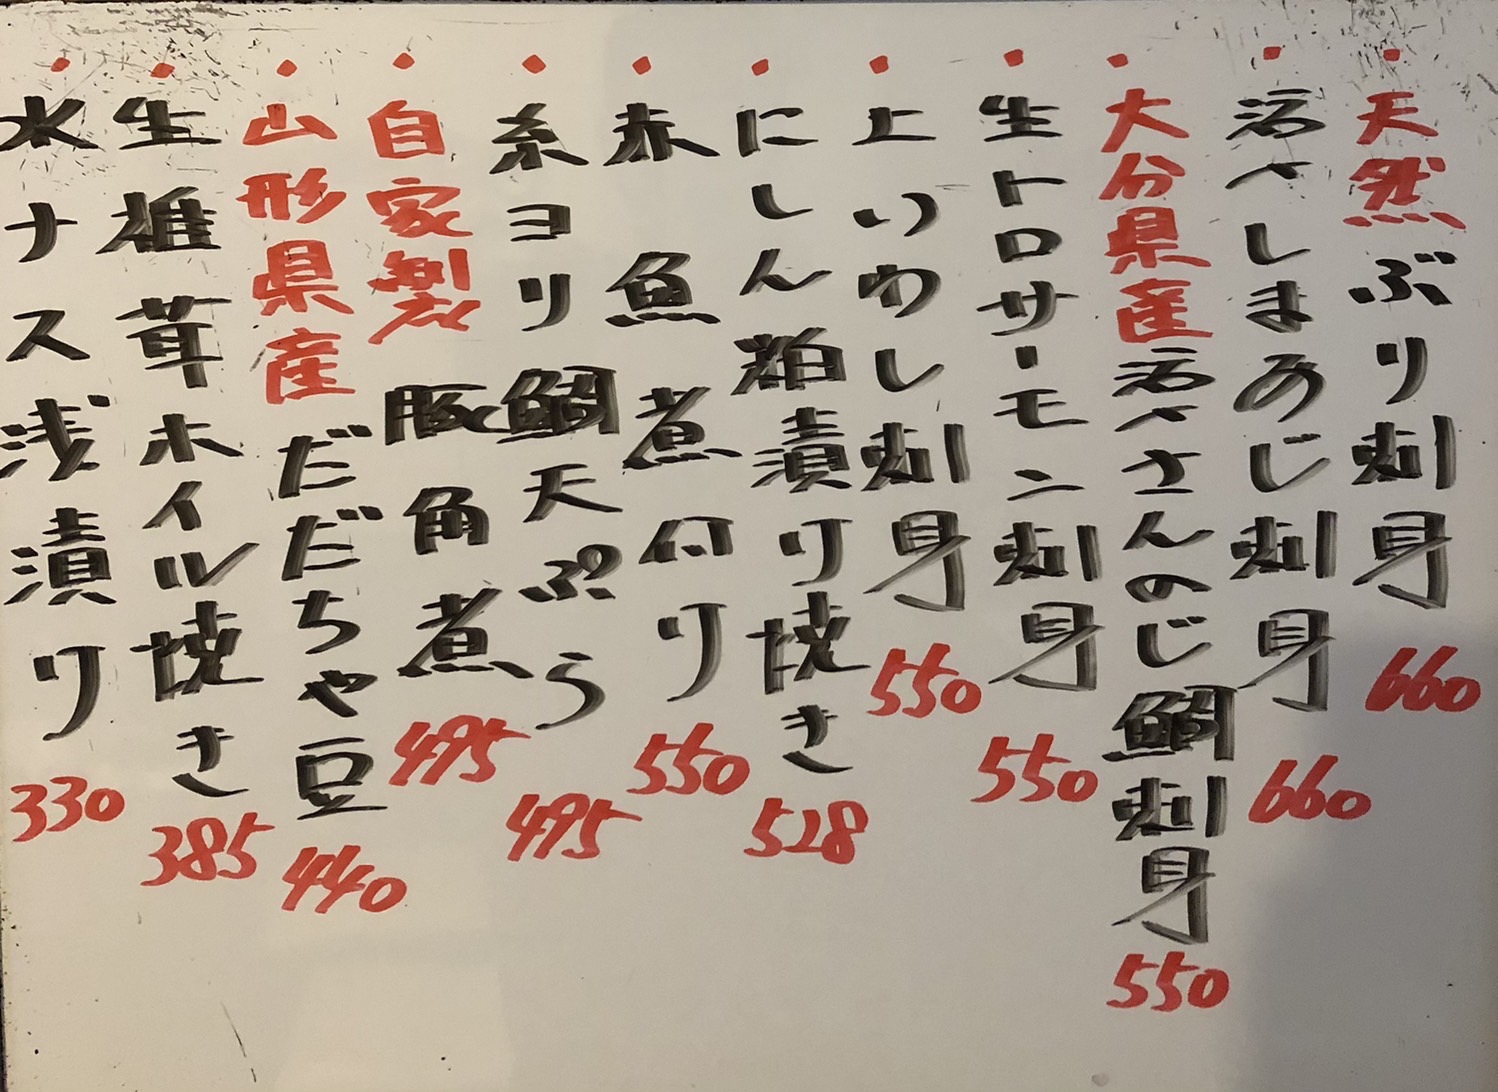 ・天然ぶり刺身 660
・活〆しまあじ刺身 660
・大分県産活〆さんのじ鯛刺身 550
・生トロサーモン刺身 550
・上いわし刺身 550
・にしん粕漬り焼き 528
・赤魚煮付り 550
・糸ヨリ鯛天ぷら 495
・自家製豚角煮 495
・山形県産だだちゃ豆 440
・生椎茸ホイル焼き 385
・水ナス浅漬り 330